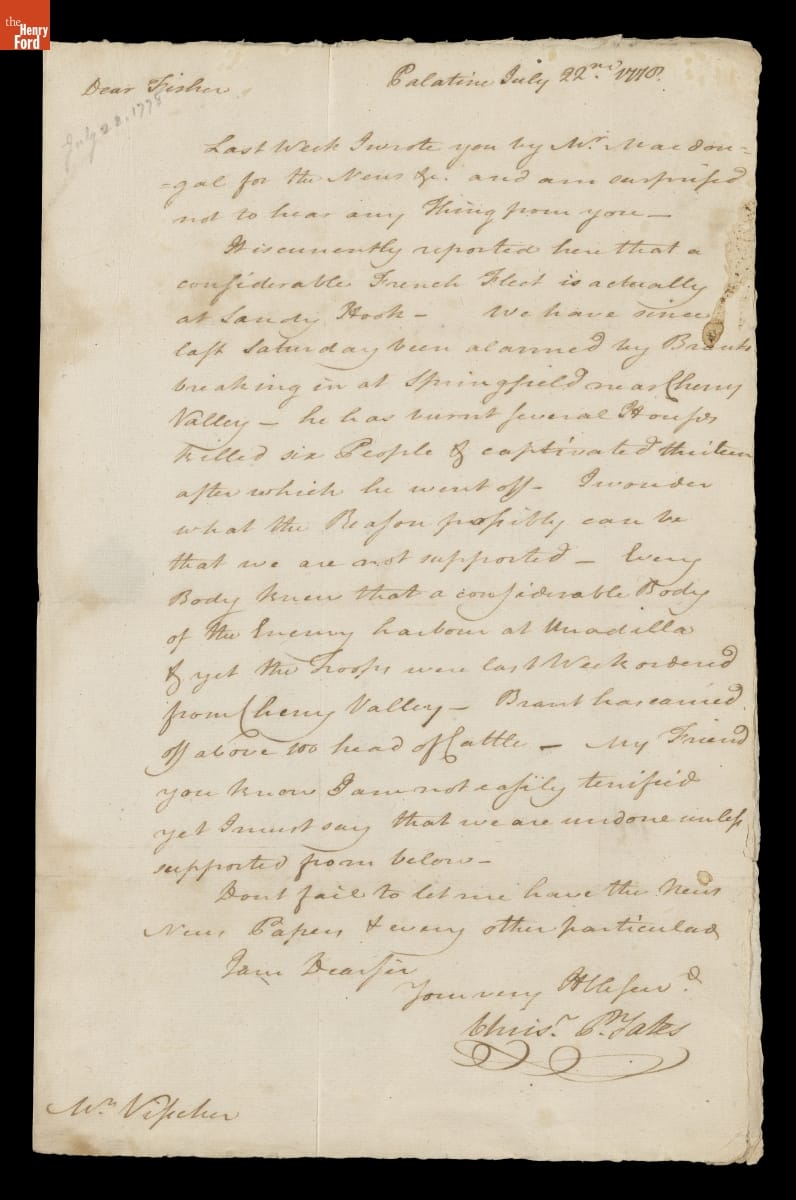 the
Henry
Ford
Dear Fisher Palatine July 22nd. 1778.
July 22, 1778
Last Week I wrote you by Mr. Macdon=
=gal for the News &c. and am surprised
not to hear any Thing from you —
It is currently reported here that a
considerable French Fleet is actually
at Sandy Hook — We have since
last Saturday been alarmed by Brants
breaking in at Springfield near Cherry
Valley — he has burnt several Houses
killed six People & captivated thirteen
after which he went off — I wonder
what the Reason possibly can be
that we are not supported — Every
Body knew that a considerable Body
of the Enemy harbour at Unadilla
& yet the Troops were last Week ordered
from Cherry Valley — Brant has carried
off above 100 head of Cattle — My Friend
you know I am not easily terrified
yet I must say that we are undone unless
supported from below —
Dont fail to let me have the News
News Papers & every other particular
I am Dear Sir
Your very Hble Servt.
Chrisr. P. Yates
Mr. Visscher